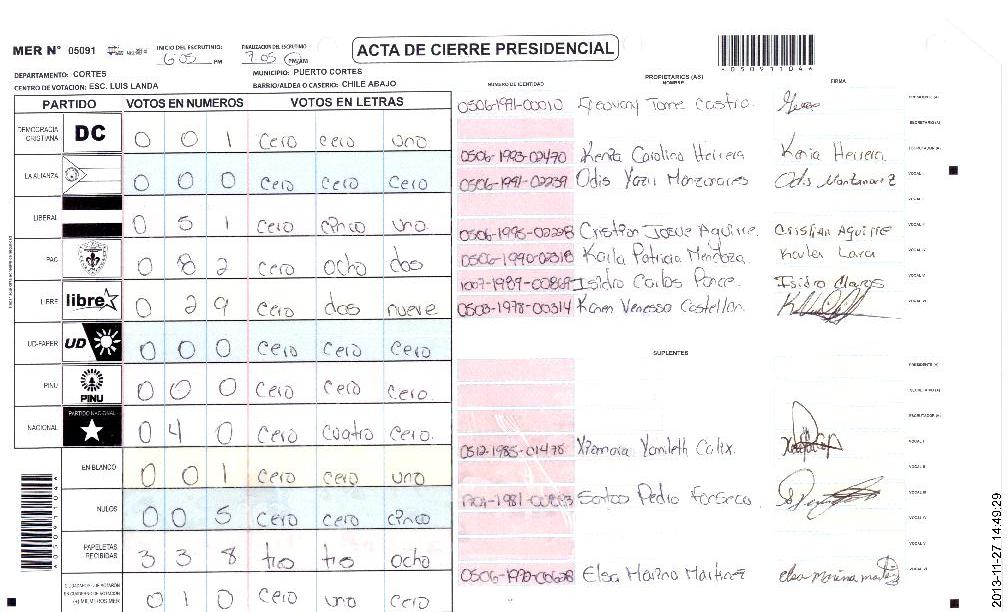 MER N° 05091
INICIO DEL ESCRUTINIO: 6:05 PM
FINALIZACION DEL ESCRUTINIO 7:05 PM/AM
ACTA DE CIERRE PRESIDENCIAL
DEPARTAMENTO: CORTES
MUNICIPIO: PUERTO CORTES
CENTRO DE VOTACION: ESC. LUIS LANDA
BARRIO/ALDEA O CASERIO: CHILE ABAJO
PARTIDO VOTOS EN NUMEROS VOTOS EN LETRAS
DEMOCRACIA CRISTIANA DC 0 0 1 cero cero uno
LA ALIANZA 0 0 0 cero cero cero
LIBERAL 0 5 1 cero cinco uno
PAC 0 8 2 cero ocho dos
LIBRE libre 0 2 9 cero dos nueve
UD-FAPER UD 0 0 0 cero cero cero
PINU PINU 0 0 0 cero cero cero
NACIONAL PARTIDO NACIONAL 0 4 0 cero cuatro cero.
EN BLANCO 0 0 1 cero cero uno
NULOS 0 0 5 cero cero cinco
PAPELETAS RECIBIDAS 3 3 8 tres tres ocho
0 1 0 cero uno cero
NUMERO DE IDENTIDAD PROPIETARIOS (AS) NOMBRE FIRMA
0506-1991-00010 Geovany Torre Castro.
0506-1993-02470 Kenia Carolina Herrera Kenia Herrera.
0506-1991-02239 Odis Yazir Manzanares
0506-1995-02228 Cristian Josue Aguirre. Cristian Aguirre
0506-1990-02318 Karla Patricia Mendoza. Karla Lara
1007-1987-00869 Isidro Carlos Ponce. Isidro
0503-1978-00314 Karen Venessa Castellon.
SUPLENTES
0512-1985-01475 Xiomara Yamileth Calix.
Santos Pedro Fonseca
0506-1970-00628 Elsa Marina Martinez elsa marina
2013-11-27 14:49:29